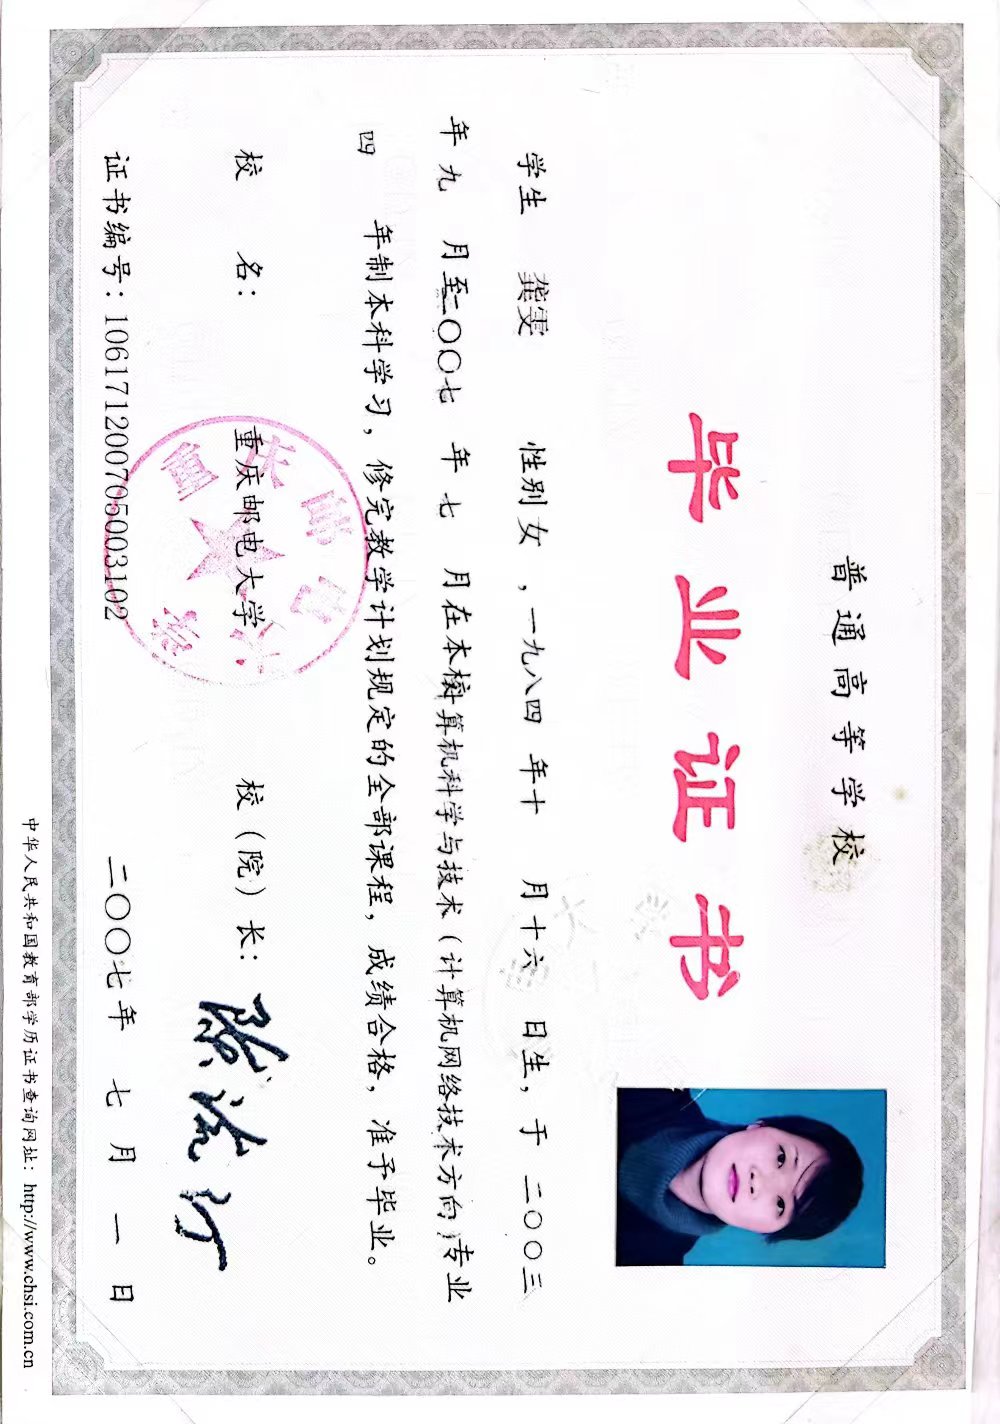 普通高等学校
毕业证书
学生 龚雯 性别 女 ，一九八四 年 十 月 十六 日生，于 二〇〇三
年 九 月至二〇〇七 年 七 月在本校计算机科学与技术（计算机网络技术方向）专业
四 年制本科学习，修完教学计划规定的全部课程，成绩合格，准予毕业。
校 名： 重庆邮电大学 校（院）长：
证书编号：106171200705003102 二〇〇七年 七 月 一 日
中华人民共和国教育部学历证书查询网址：http://www.chsi.com.cn